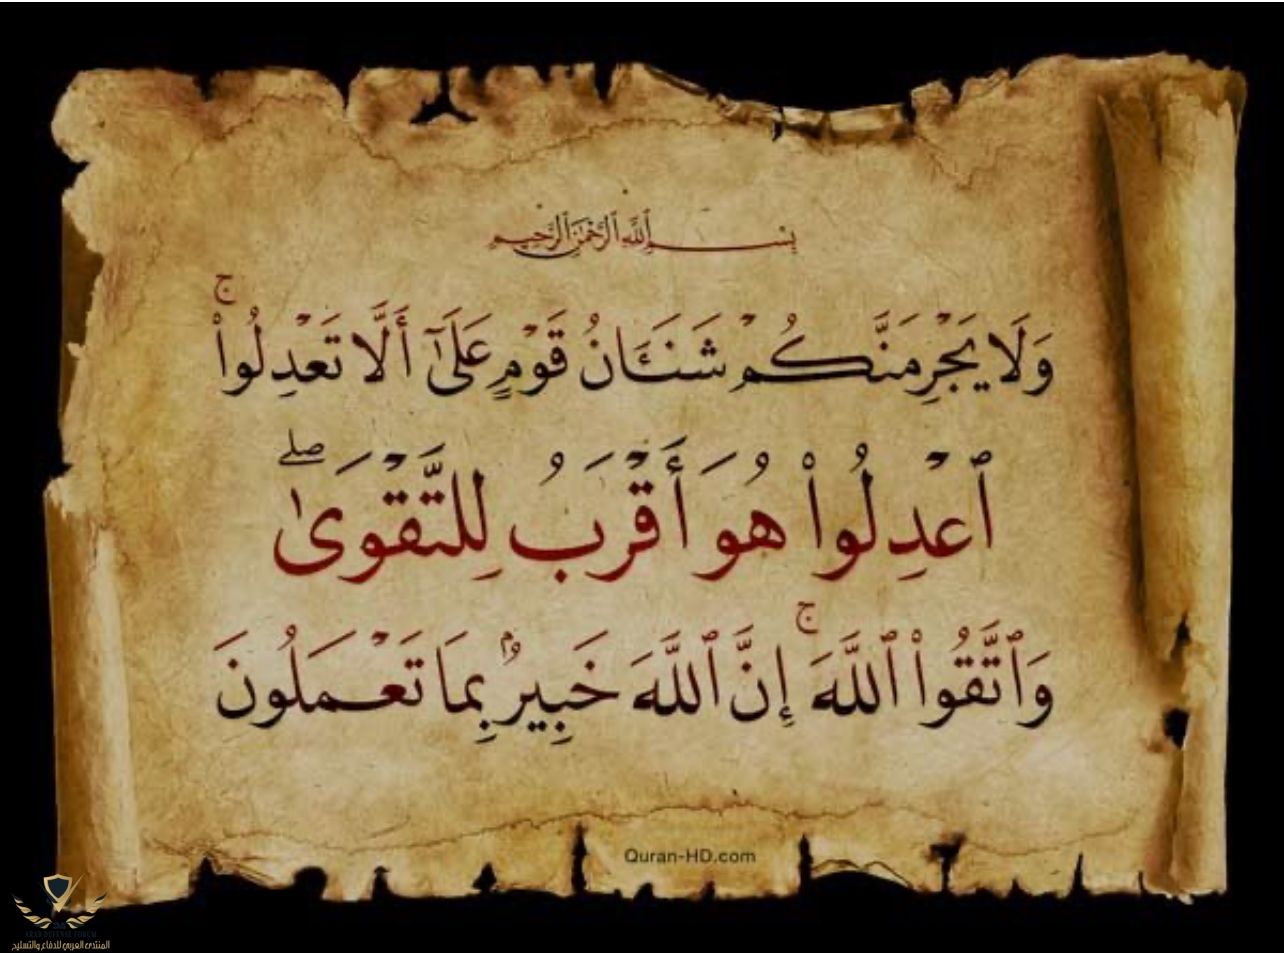 بِسْمِ ٱللَّهِ ٱلرَّحْمَٰنِ ٱلرَّحِيمِ
وَلَا يَجْرِمَنَّكُمْ شَنَـَٔانُ قَوْمٍ عَلَىٰٓ أَلَّا تَعْدِلُوا۟ ۚ
ٱعْدِلُوا۟ هُوَ أَقْرَبُ لِلتَّقْوَىٰ ۖ
وَٱتَّقُوا۟ ٱللَّهَ ۚ إِنَّ ٱللَّهَ خَبِيرٌۢ بِمَا تَعْمَلُونَ
Quran-HD.com
ARAB DEFENSE FORUM
المنتدى العربي للدفاع والتسليح